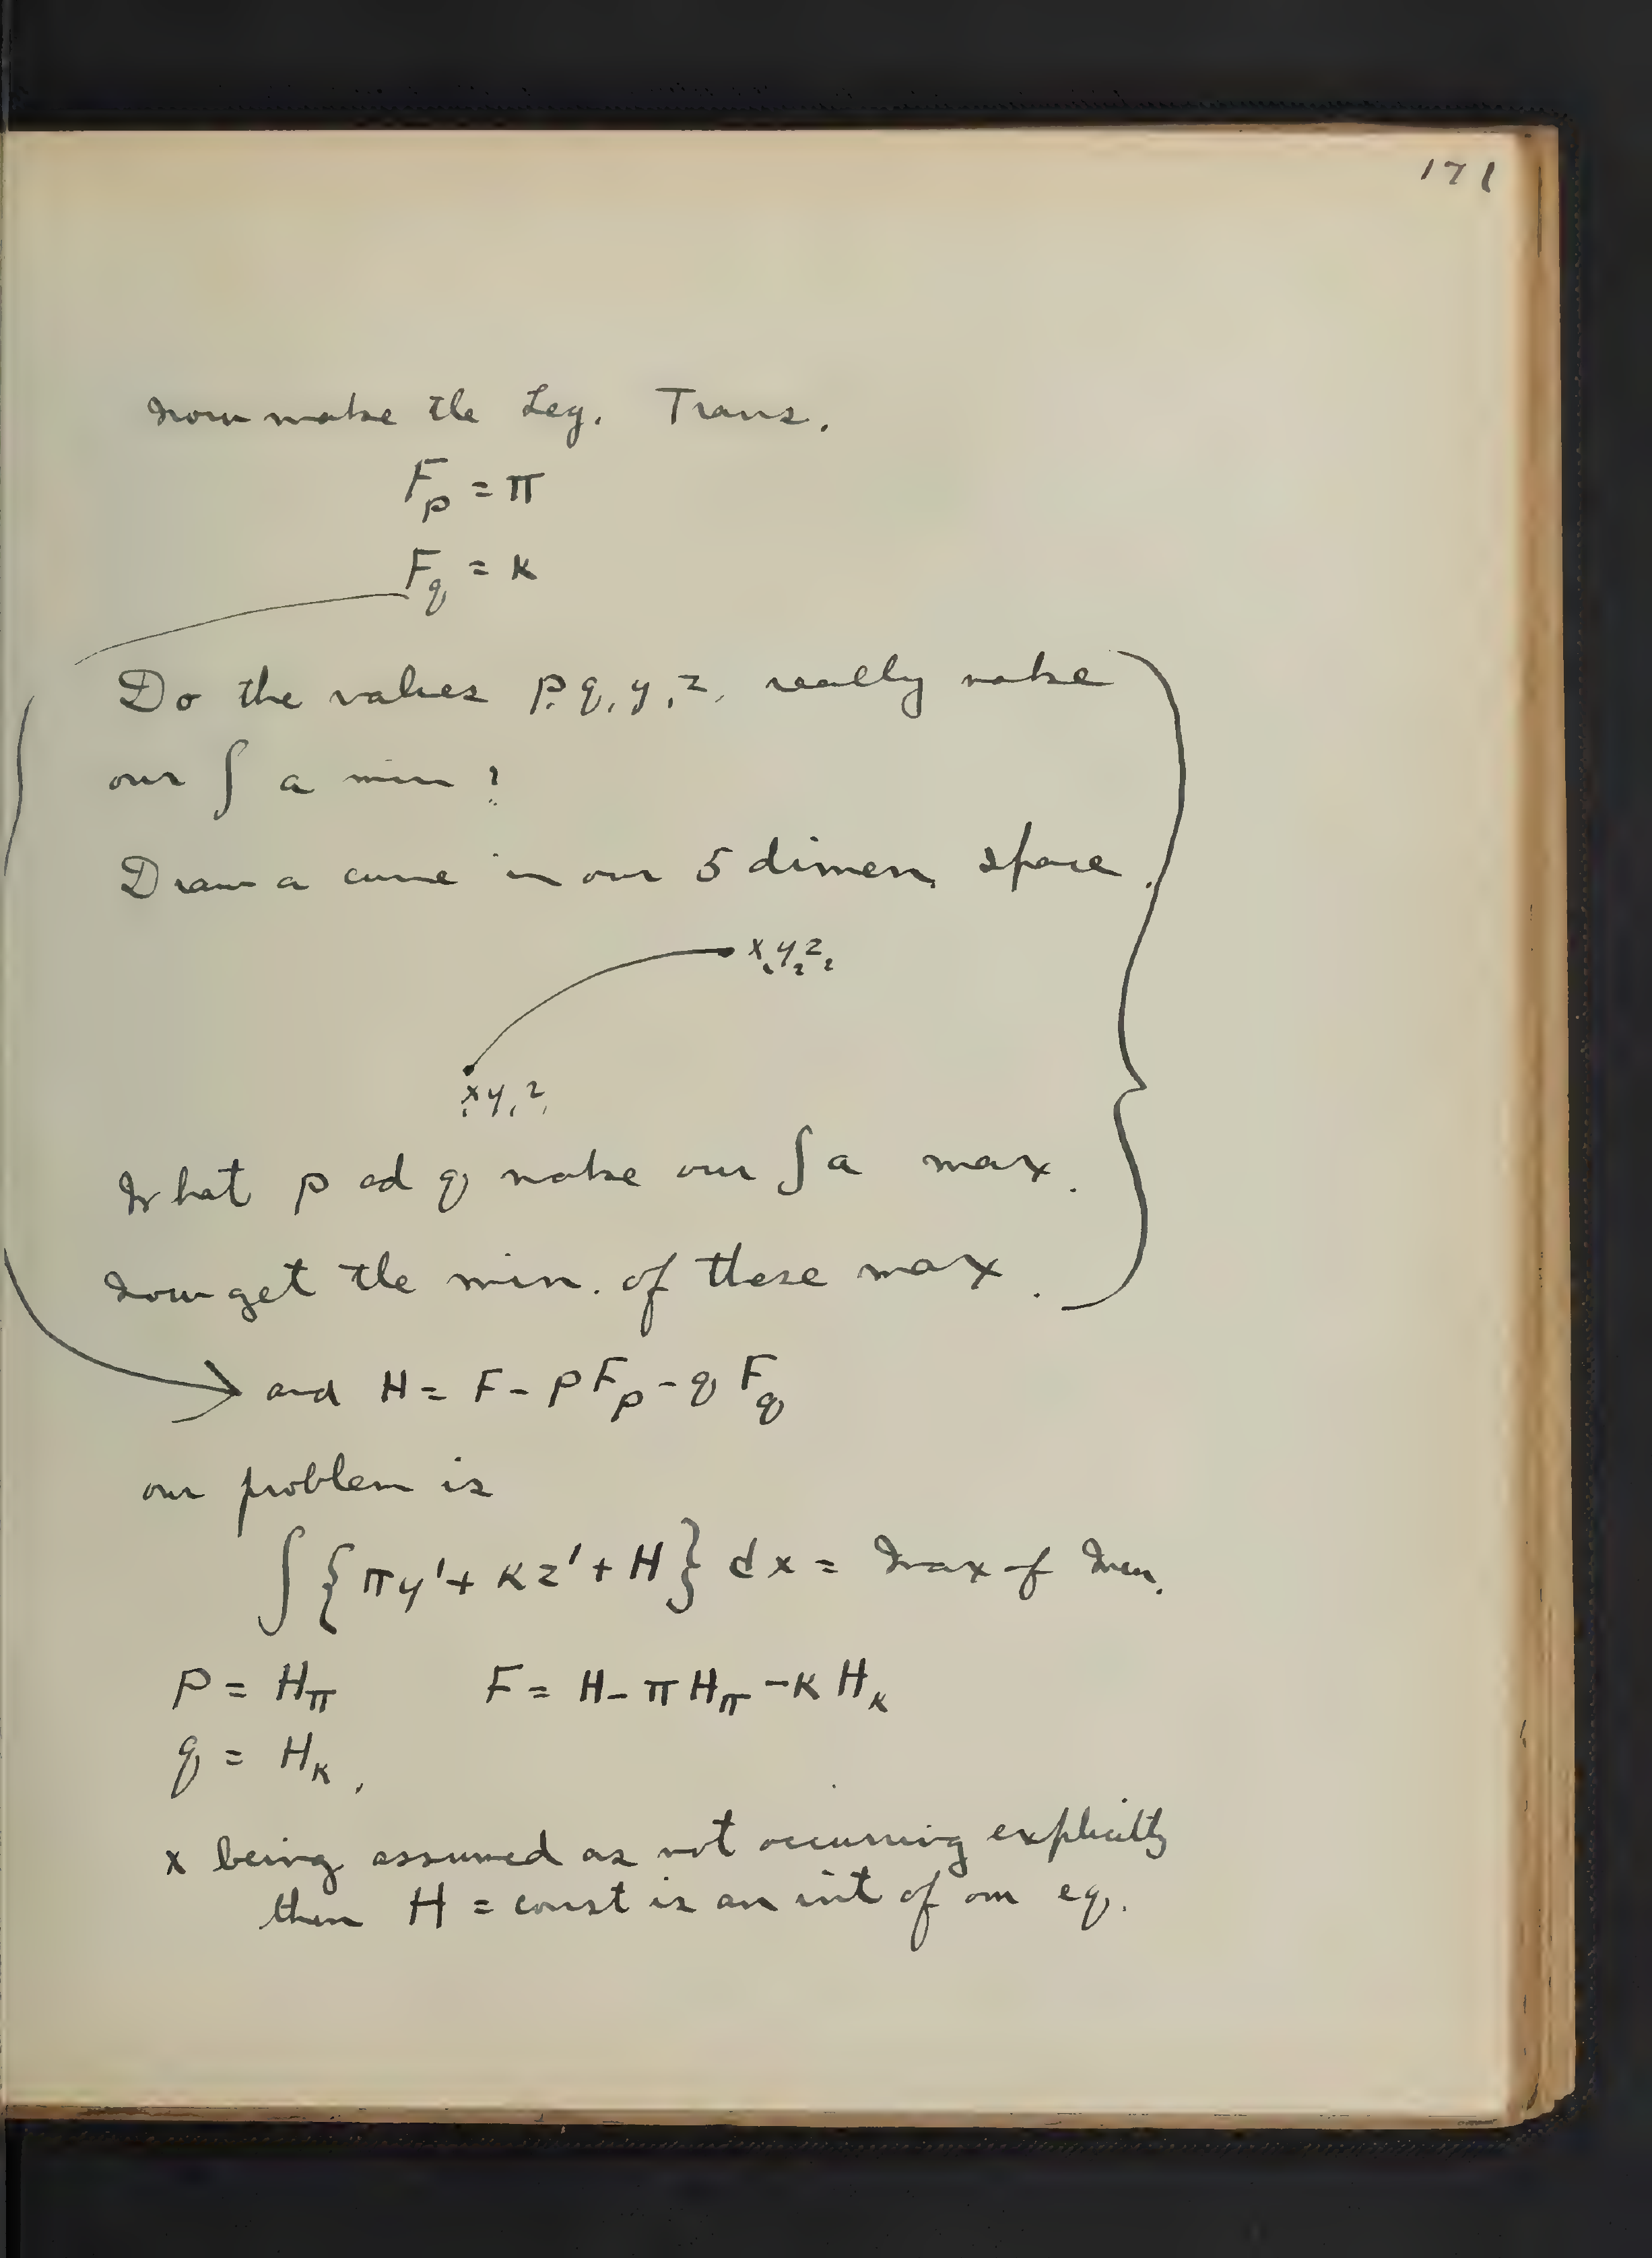 171
Now make the Leg. Trans.
F_p = π
F_q = κ
Do the values p, q, y, z, really make
our ∫ a min?
Draw a curve in our 5 dimen. space.
x₂ y₂ z₂
x₁ y₁ z₁
What p ad q make our ∫ a max.
Now get the min. of these max.
and H = F - p F_p - q F_q
our problem is
∫ { π y' + κ z' + H } dx = Max of Min.
p = H_π    F = H - π H_π - κ H_κ
q = H_κ,
x being assumed as not occurring explicitly
then H = const is an int of our eq.